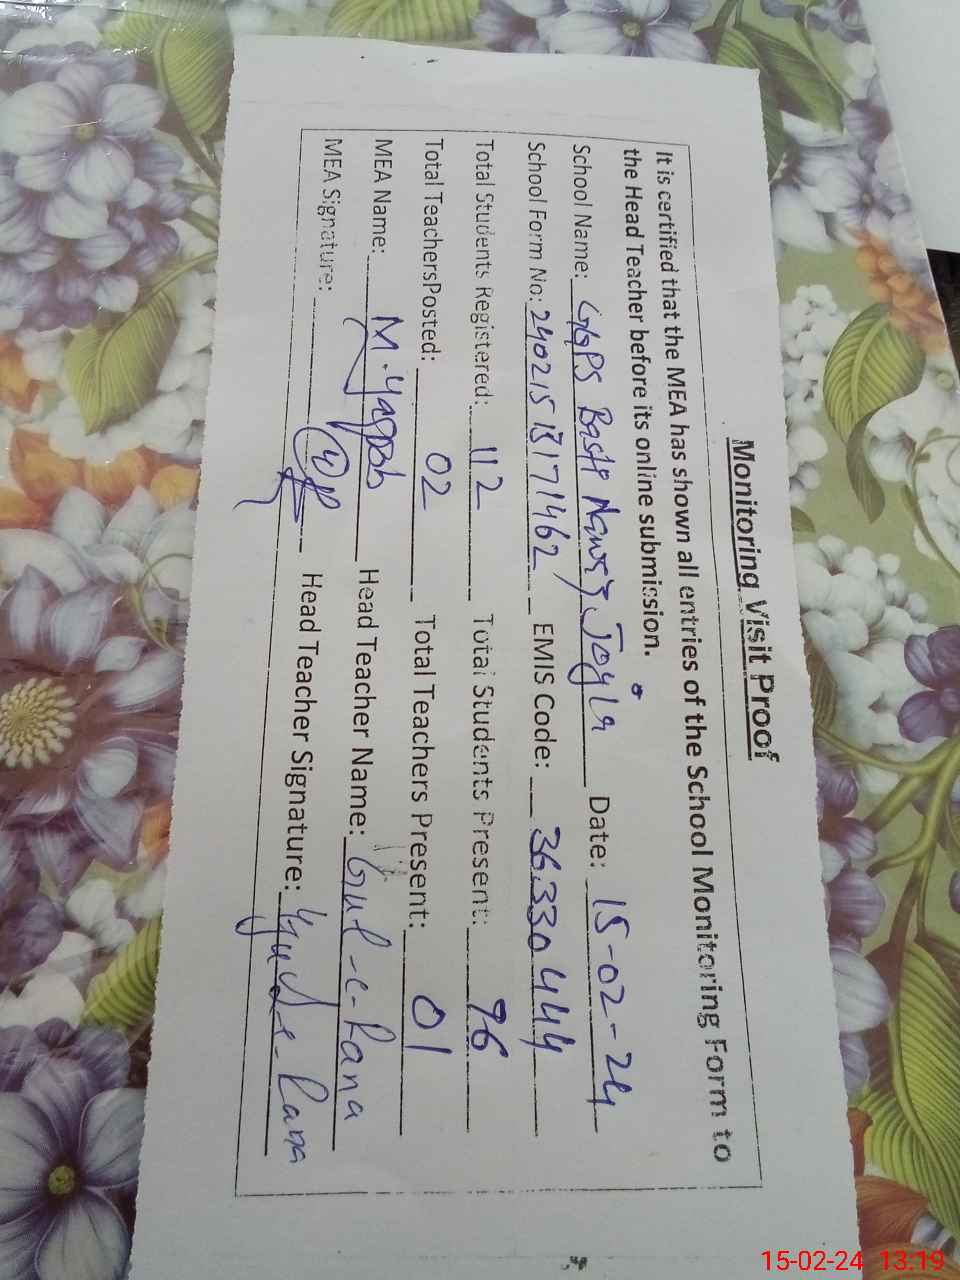 Monitoring Visit Proof
It is certified that the MEA has shown all entries of the School Monitoring Form to
the Head Teacher before its online submission.
School Name: GGPS Basti Nawaz Joyia Date: 15-02-24
School Form No: 24021513171462 EMIS Code: 36330444
Total Students Registered: 112 Total Students Present: 96
Total TeachersPosted: 02 Total Teachers Present: 01
MEA Name: M. Yaqoob Head Teacher Name: Gul-e-Rana
MEA Signature: Head Teacher Signature: Gul-e-Rana
15-02-24 13:19